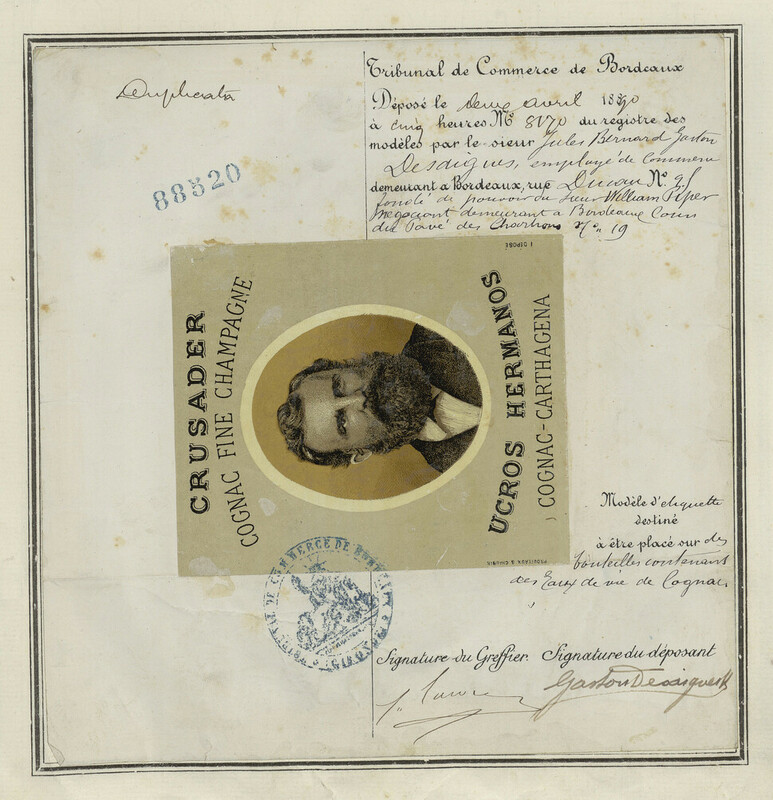 Duplicata
88520
Tribunal de Commerce de Bordeaux
Déposé le deux avril 1890
à cinq heures No 8170 du registre des
modèles par le sieur Jules Bernard Gaston
Desaigues, employé de Commerce
demeurant à Bordeaux, rue No
fondé de pouvoir du sieur William Piper
négociant demeurant à Bordeaux Cours
du Pavé des Chartrons No 19
CRUSADER
COGNAC FINE CHAMPAGNE
UCROS HERMANOS
COGNAC-CARTHAGENA
DÉPOSÉ
Modèle d'étiquette
destiné
à être placé sur des
bouteilles contenant
des Eaux de vie de Cognac
TRIBUNAL DE COMMERCE DE BORDEAUX
GIRONDE
Signature du Greffier. Signature du déposant
Gaston Desaigues